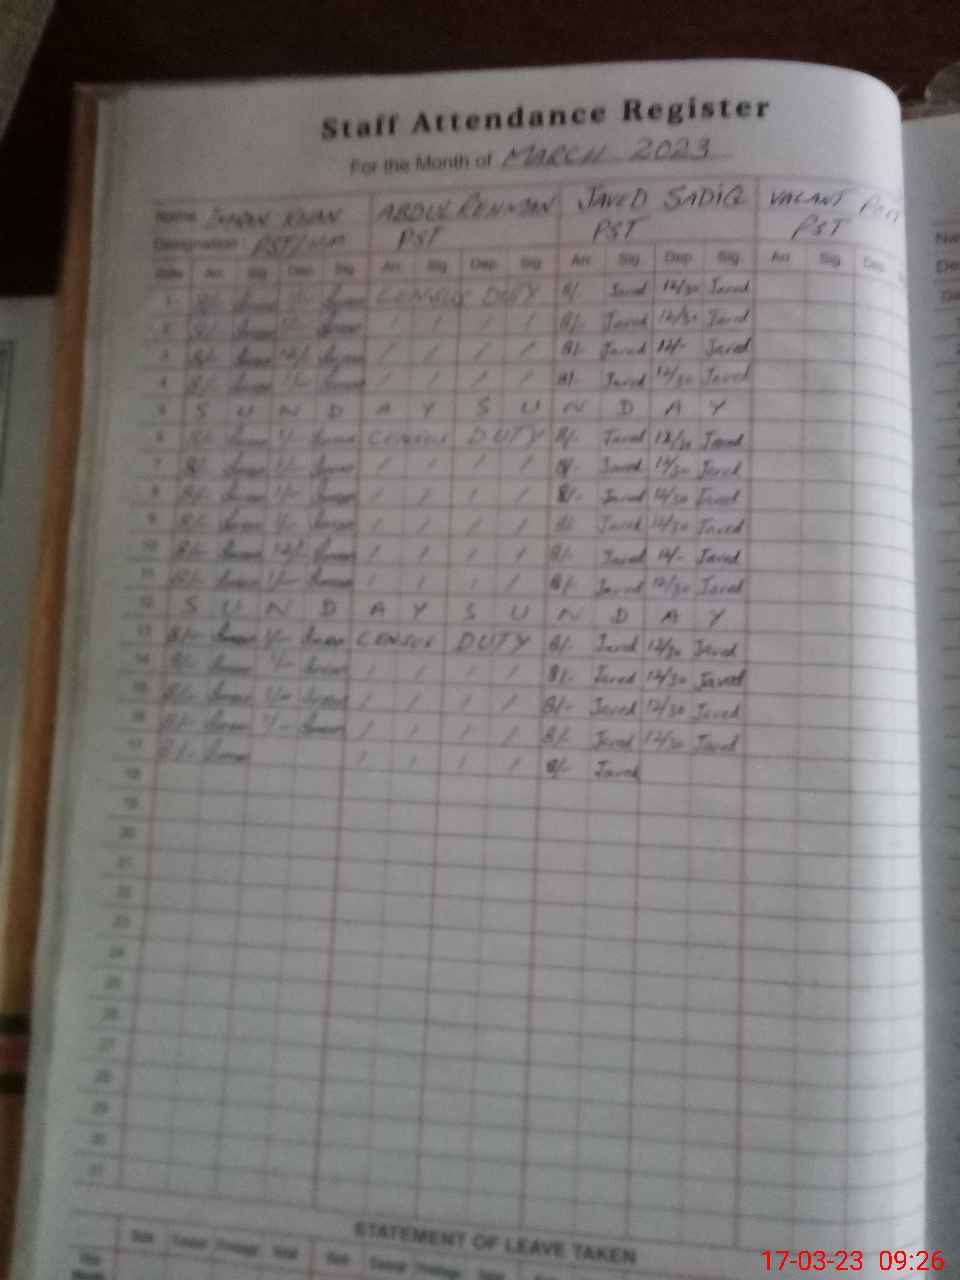 Staff Attendance Register
For the Month of MARCH 2023
Name IMRAN KHAN ABDUL REHMAN JAVED SADIQ VACANT POST
Designation: PST/HM PST PST PST
Date Arr. Sig. Dep. Sig. Arr. Sig. Dep. Sig. Arr. Sig. Dep. Sig. Arr. Sig. Dep.
1 8/- 1/- CENSUS DUTY 8/- Javed 12/30 Javed
2 8/- 1/- / / / / 8/- Javed 12/30 Javed
3 8/- 12/- / / / / 8/- Javed 12/- Javed
4 8/- 1/- / / / / 8/- Javed 12/30 Javed
5 S U N D A Y S U N D A Y
6 8/- 1/- CENSUS DUTY 8/- Javed 12/30 Javed
7 8/- 1/- / / / / 8/- Javed 12/30 Javed
8 8/- 1/- / / / / 8/- Javed 12/30 Javed
9 8/- 1/- / / / / 8/- Javed 12/30 Javed
10 8/- 12/- / / / / 8/- Javed 12/- Javed
11 8/- 1/- / / / / 8/- Javed 12/30 Javed
12 S U N D A Y S U N D A Y
13 8/- 1/- CENSUS DUTY 8/- Javed 12/30 Javed
14 8/- 1/- / / / / 8/- Javed 12/30 Javed
15 8/- 1/- / / / / 8/- Javed 12/30 Javed
16 8/- 1/- / / / / 8/- Javed 12/30 Javed
17 8/- / / / / 8/- Javed
18
19
20
21
22
23
24
25
26
27
28
29
30
31
STATEMENT OF LEAVE TAKEN
17-03-23 09:26